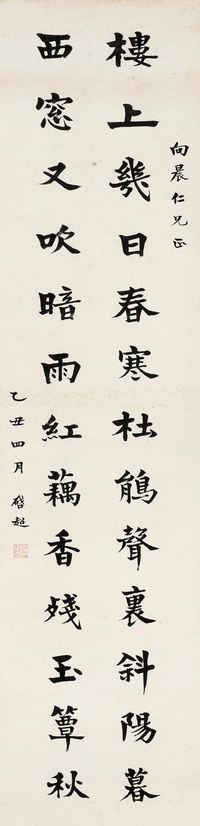 向晨仁兄正
樓上幾日春寒杜鵑聲裏斜陽暮
西窓又吹暗雨紅藕香殘玉簟秋
乙丑四月啓超